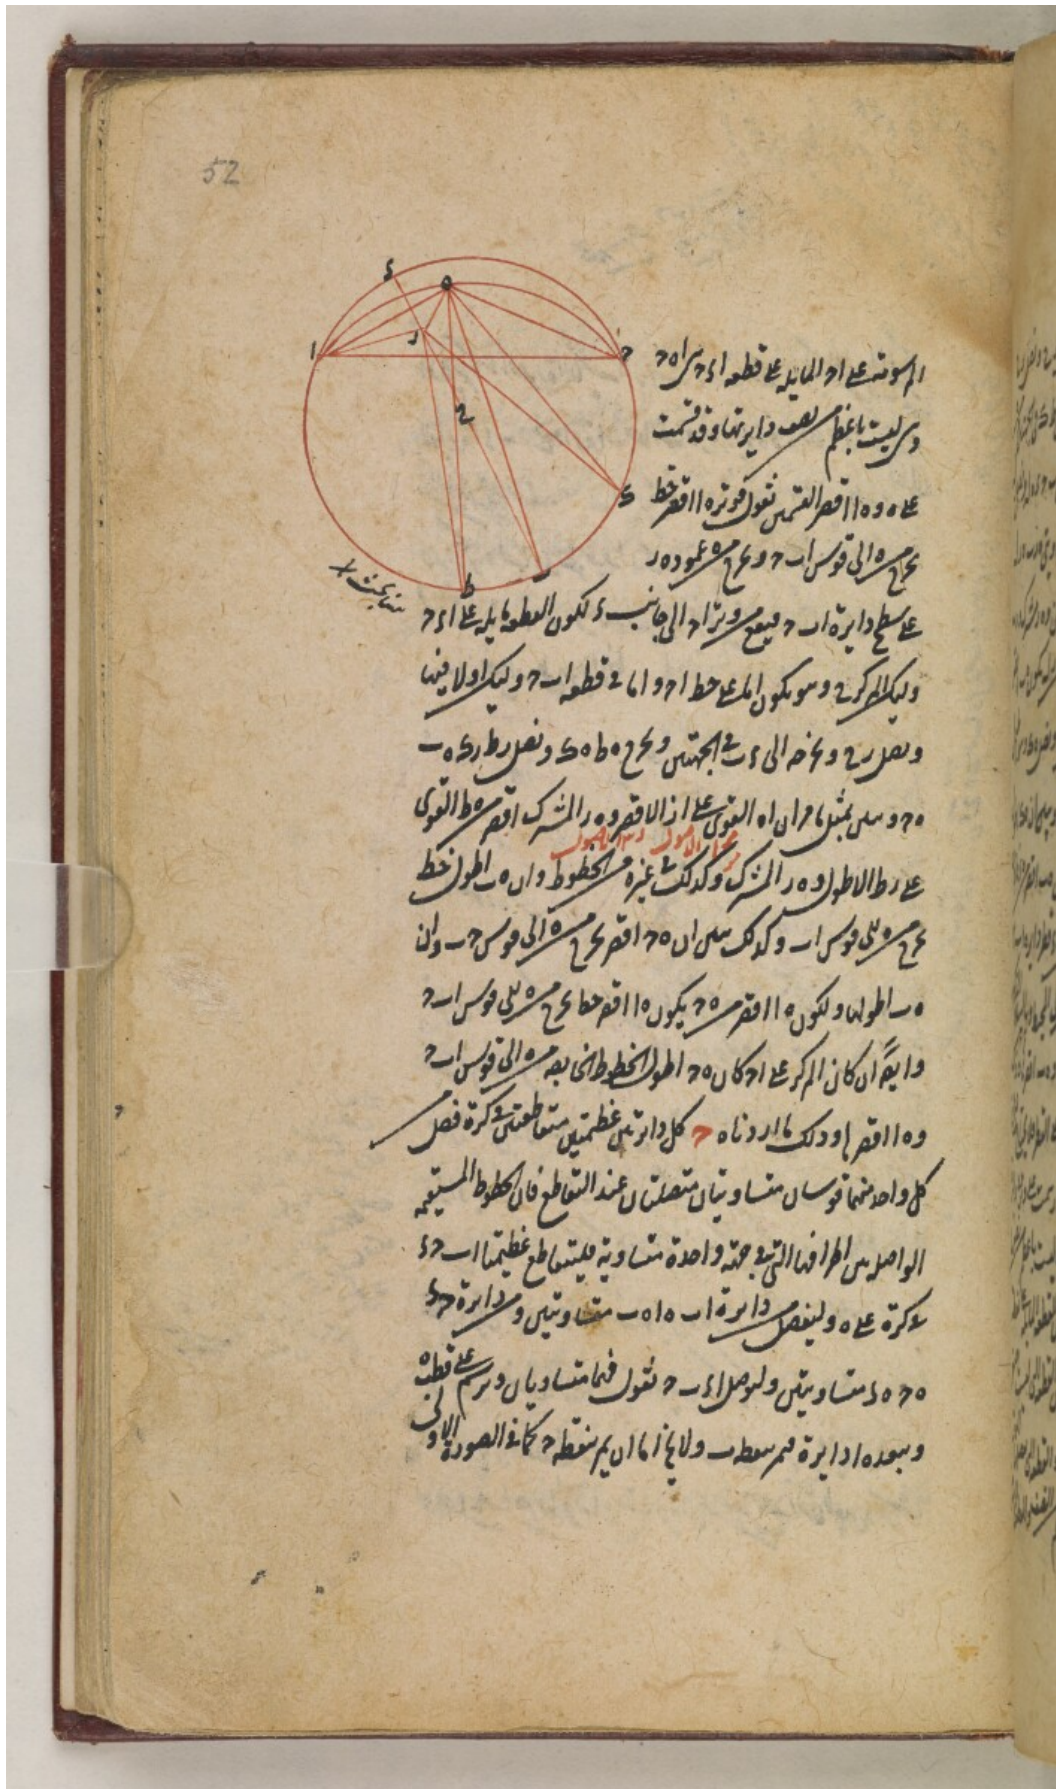 52
ء
ه
ا
ر
ح
ح
ك
ط
ب
المرسومة على ا ح المايله على قطعه ا ء ح هى ا ه ح
وهى ليست باعظم من نصف دايرتها وقد قسمت
على ه و ه ا اقصر القسمين نقول فوتر ه ا اقصر خط
يخرج من ه الى قوس ا ب ح ويخرج من ه عمود ه ر
على سطح دايرة ا ب ح فيقع من وتر ا ح الى جانب ء لكون القطعه مايله على ا ء ح
وليكن المركز ح وهو يكون اما على خط ا ح و اما فى قطعه ا ب ح وليكن اولا فيها
ونصل ر ح ونخرجه الى ء ب فى الجهتين ويخرج ه ط ه ك ونصل ر ط ر ك ه ب
ه ح و بمثل ما مر ان ا ه القوى على ا ر الاقصر و ه ر المشترك اقصر من ه ط القوى
على ر ط الاطول و ه ر المشترك وكذلك فى غيره من الخطوط وان ه ب اطول خط
يخرج من ه الى قوس ا ب وكذلك نبين ان ه ح اقصر يخرج من ه الى قوس ح ب وان
ه ب اطولها ولكون ه ا اقصر من ه ح يكون ه ا اقصر خط يخرج من ه الى قوس ا ب ح
وايضا ان كان المركز على ا ح كان ه ح اطول الخطوط الخارجه من ه الى قوس ا ب ح
و ه ا اقصرها وذلك ما اردناه ح كل دايرتين عظيمتين متقاطعتين فى كرة فصل من
كل واحد منهما قوسان متساويتان متصلتان عند التقاطع فان الخطوط المستقيمه
الواصله بين اطرافها التى فى جهة واحدة متساوية فليتقاطع عظيمتا ا ب ح ء
فى كرة على ه وليفصل من دايرة ا ب ه ا ه ب متساويتين ومن دايرة ح ء
ه ح ه ء متساويتين وليوصل ا ء ب ح نقول فهما متساويان ونرسم على قطب ه
وببعد ه ا دايرة فيمر بنقطه ب ولا يخ اما ان يمر بنقطه ح كما فى الصورة الاولى